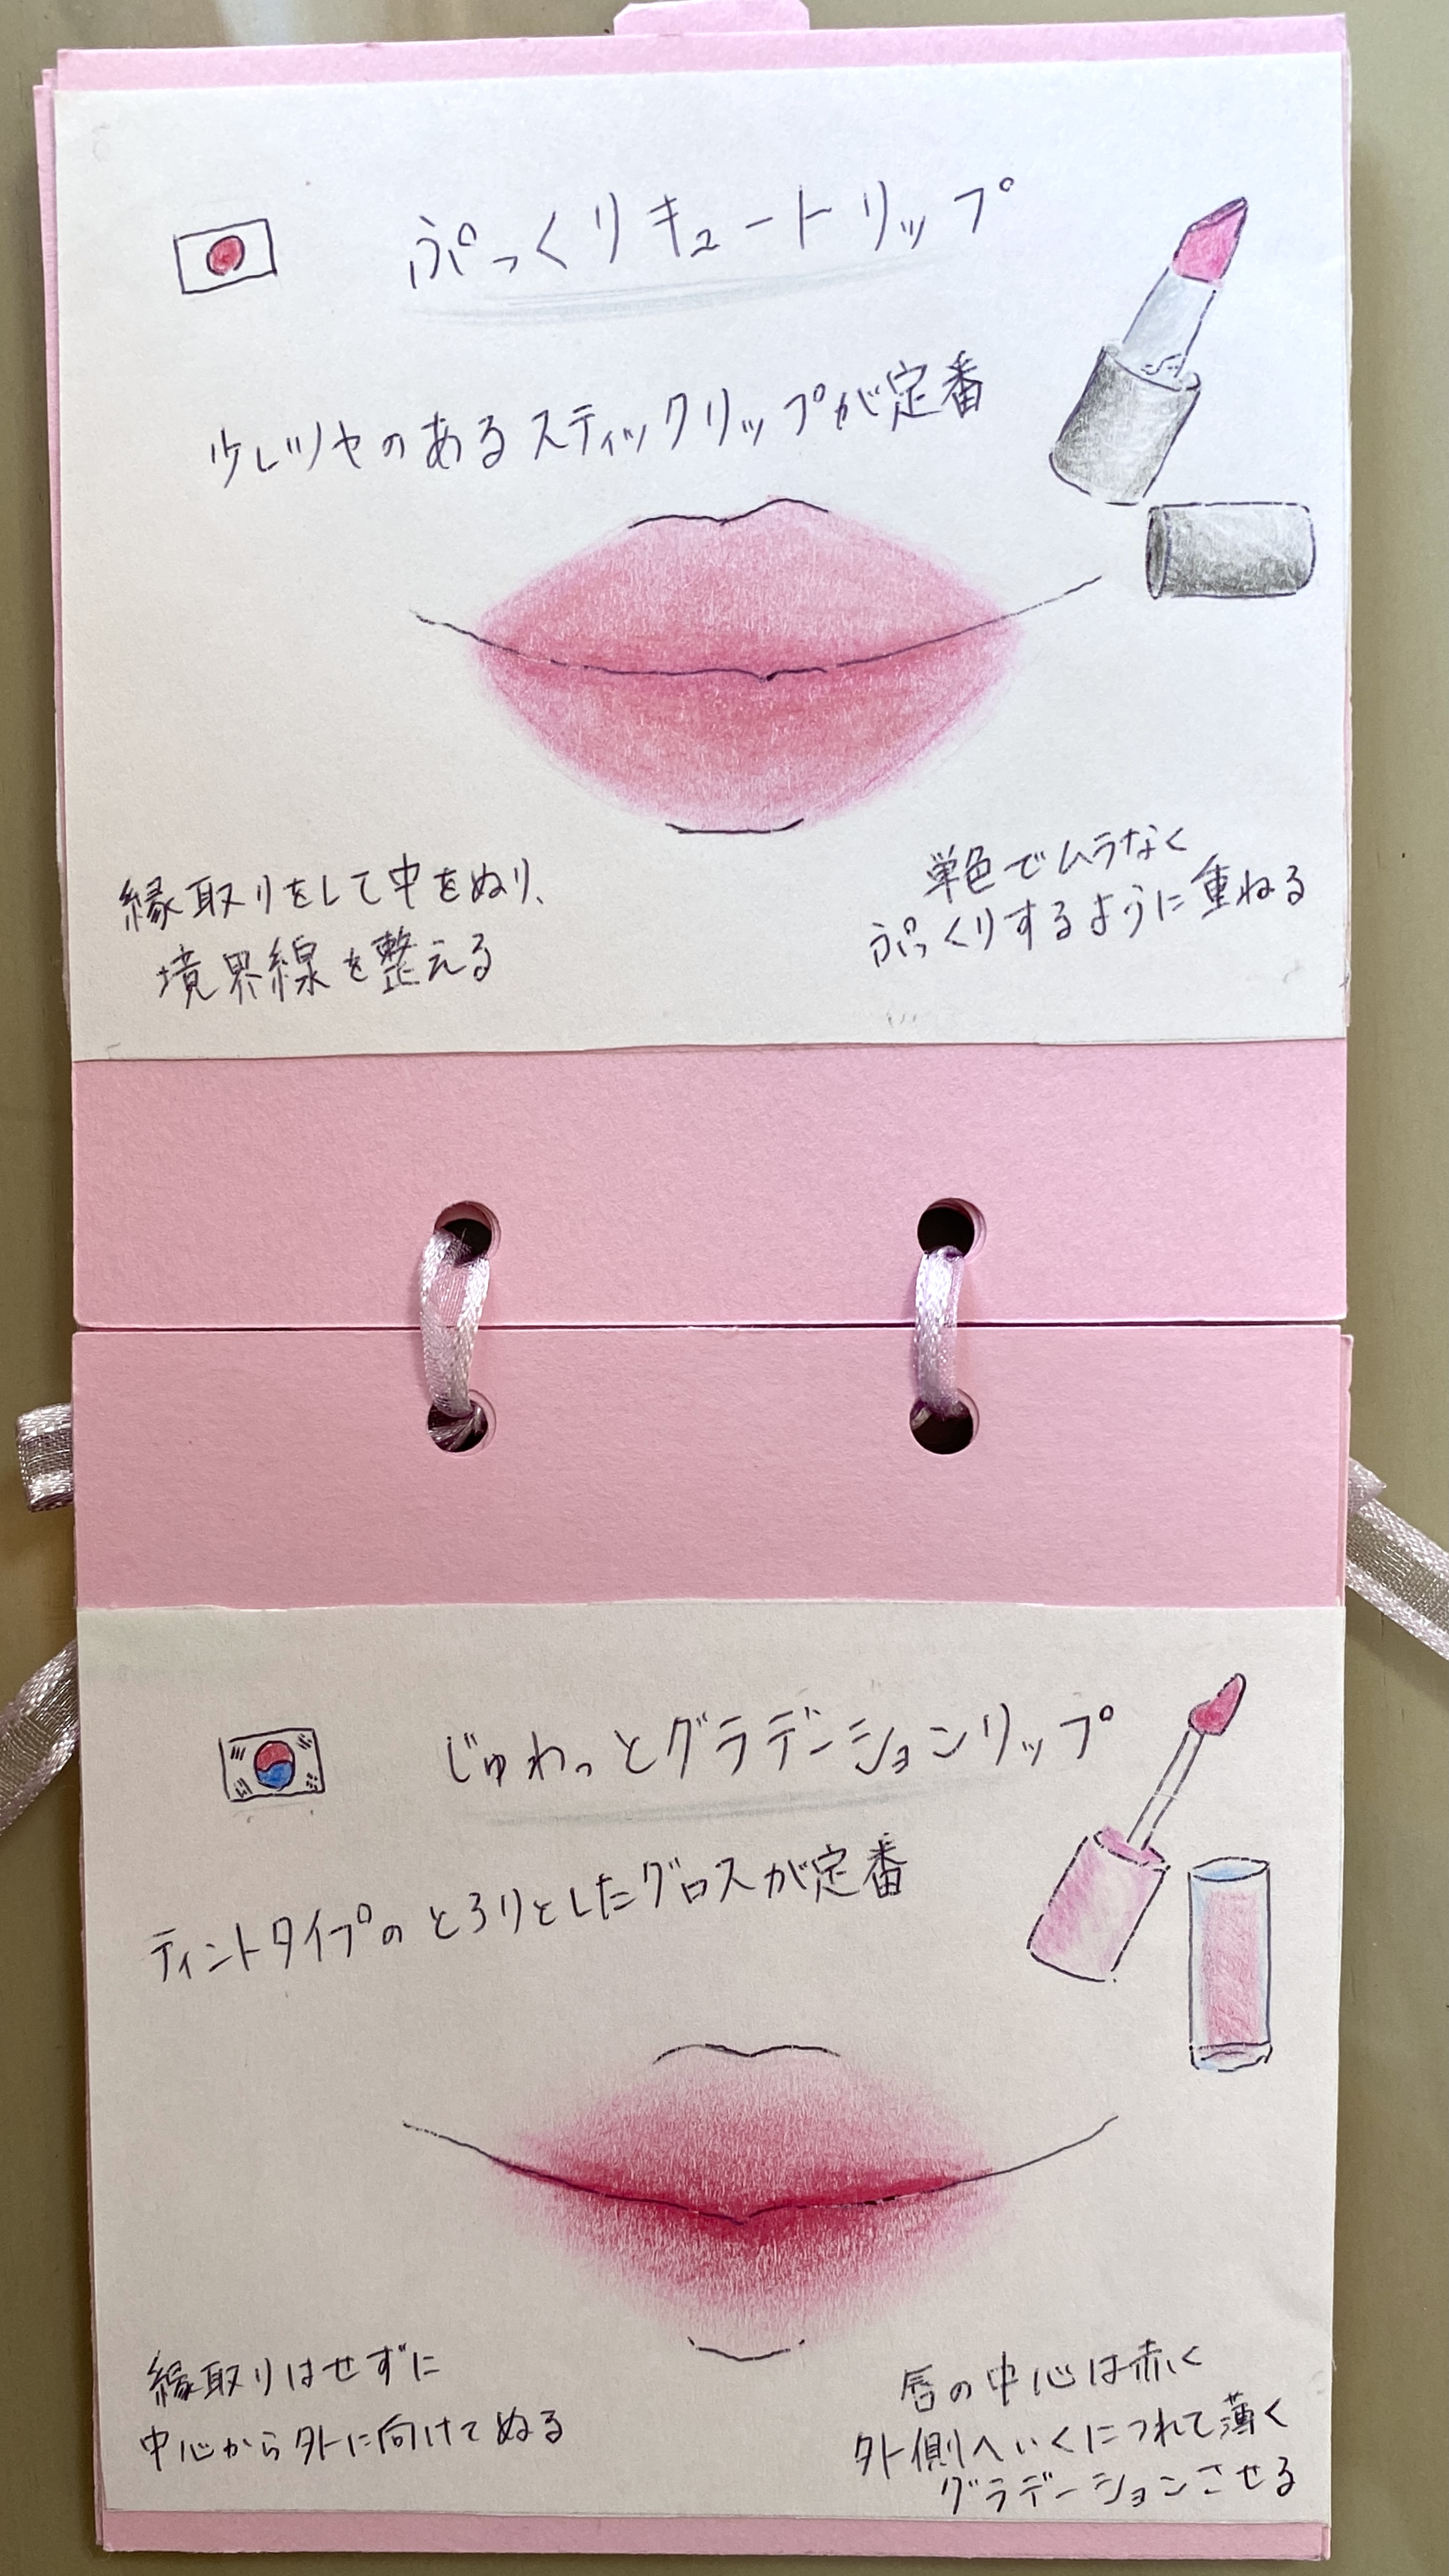 ぷっくりキュートリップ
少しツヤのあるスティックリップが定番
縁取りをして中をぬり、
境界線を整える
単色でムラなく
ぷっくりするように重ねる
じゅわっとグラデーションリップ
ティントタイプのとろりとしたグロスが定番
縁取りはせずに
中心から外に向けてぬる
唇の中心は赤く
外側へいくにつれて薄く
グラデーションさせる